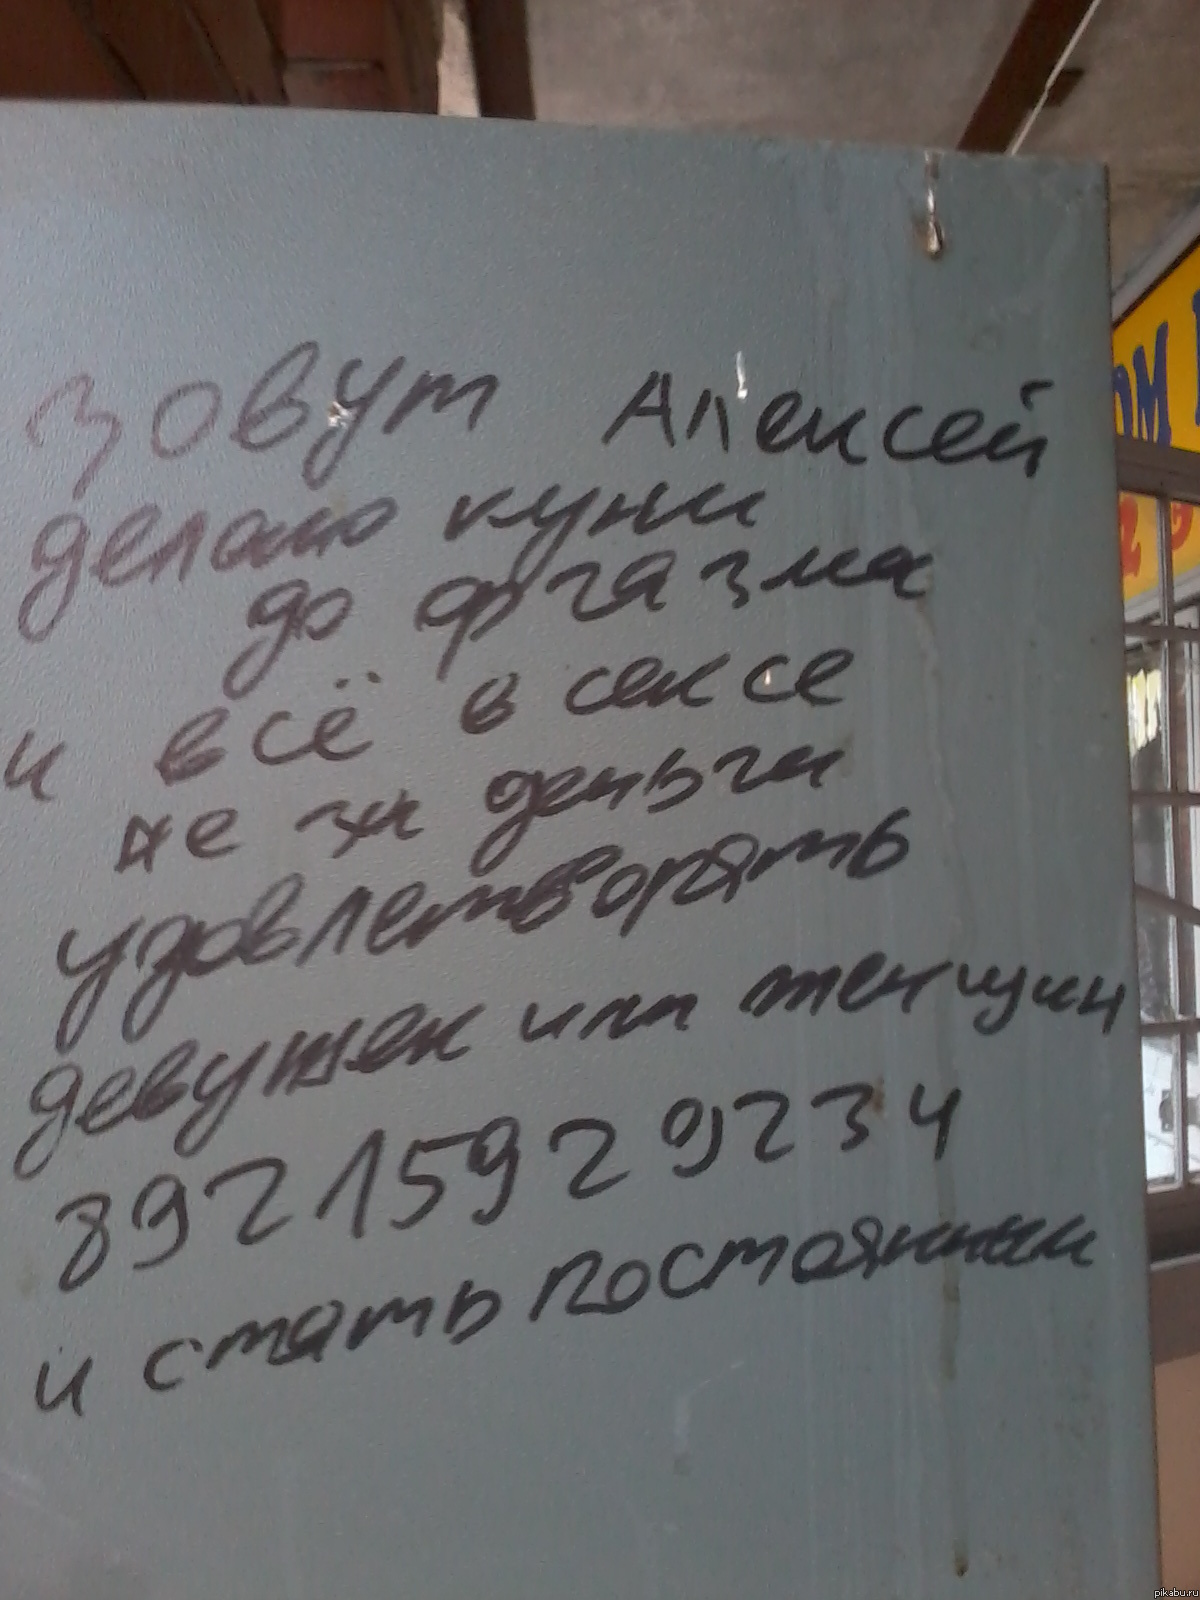 зовут Алексей
делаю куни
до фгазма
и всё в сексе
не за деньги
удовлетворять
девушек или женщин
89215929234
и стать постоянным
ОМ
pikabu.ru